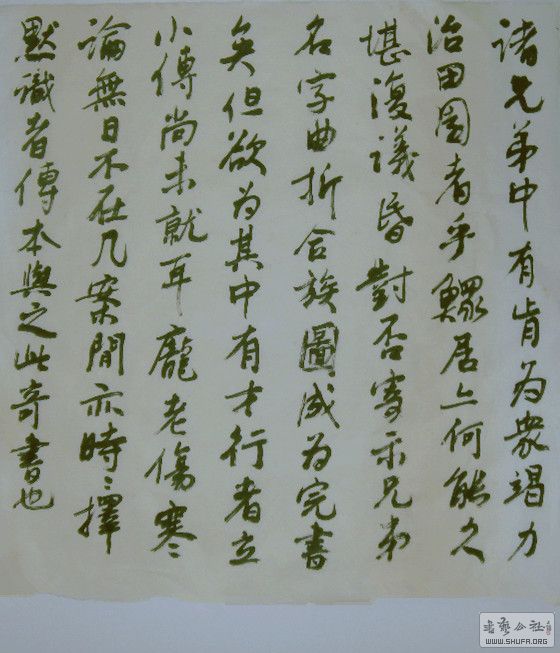 诸兄弟中有肯为衆竭力
治田园者乎鳏居亦何能久
堪复議昏對否寄示兄弟
名字曲折合族圖成为完書
矣但欲为其中有才行者立
小傅尚未就耳龐老傷寒
論無日不在几案間亦時〻擇
默識者傅本與之此奇書也
書藝公社
WWW.SHUFA.ORG